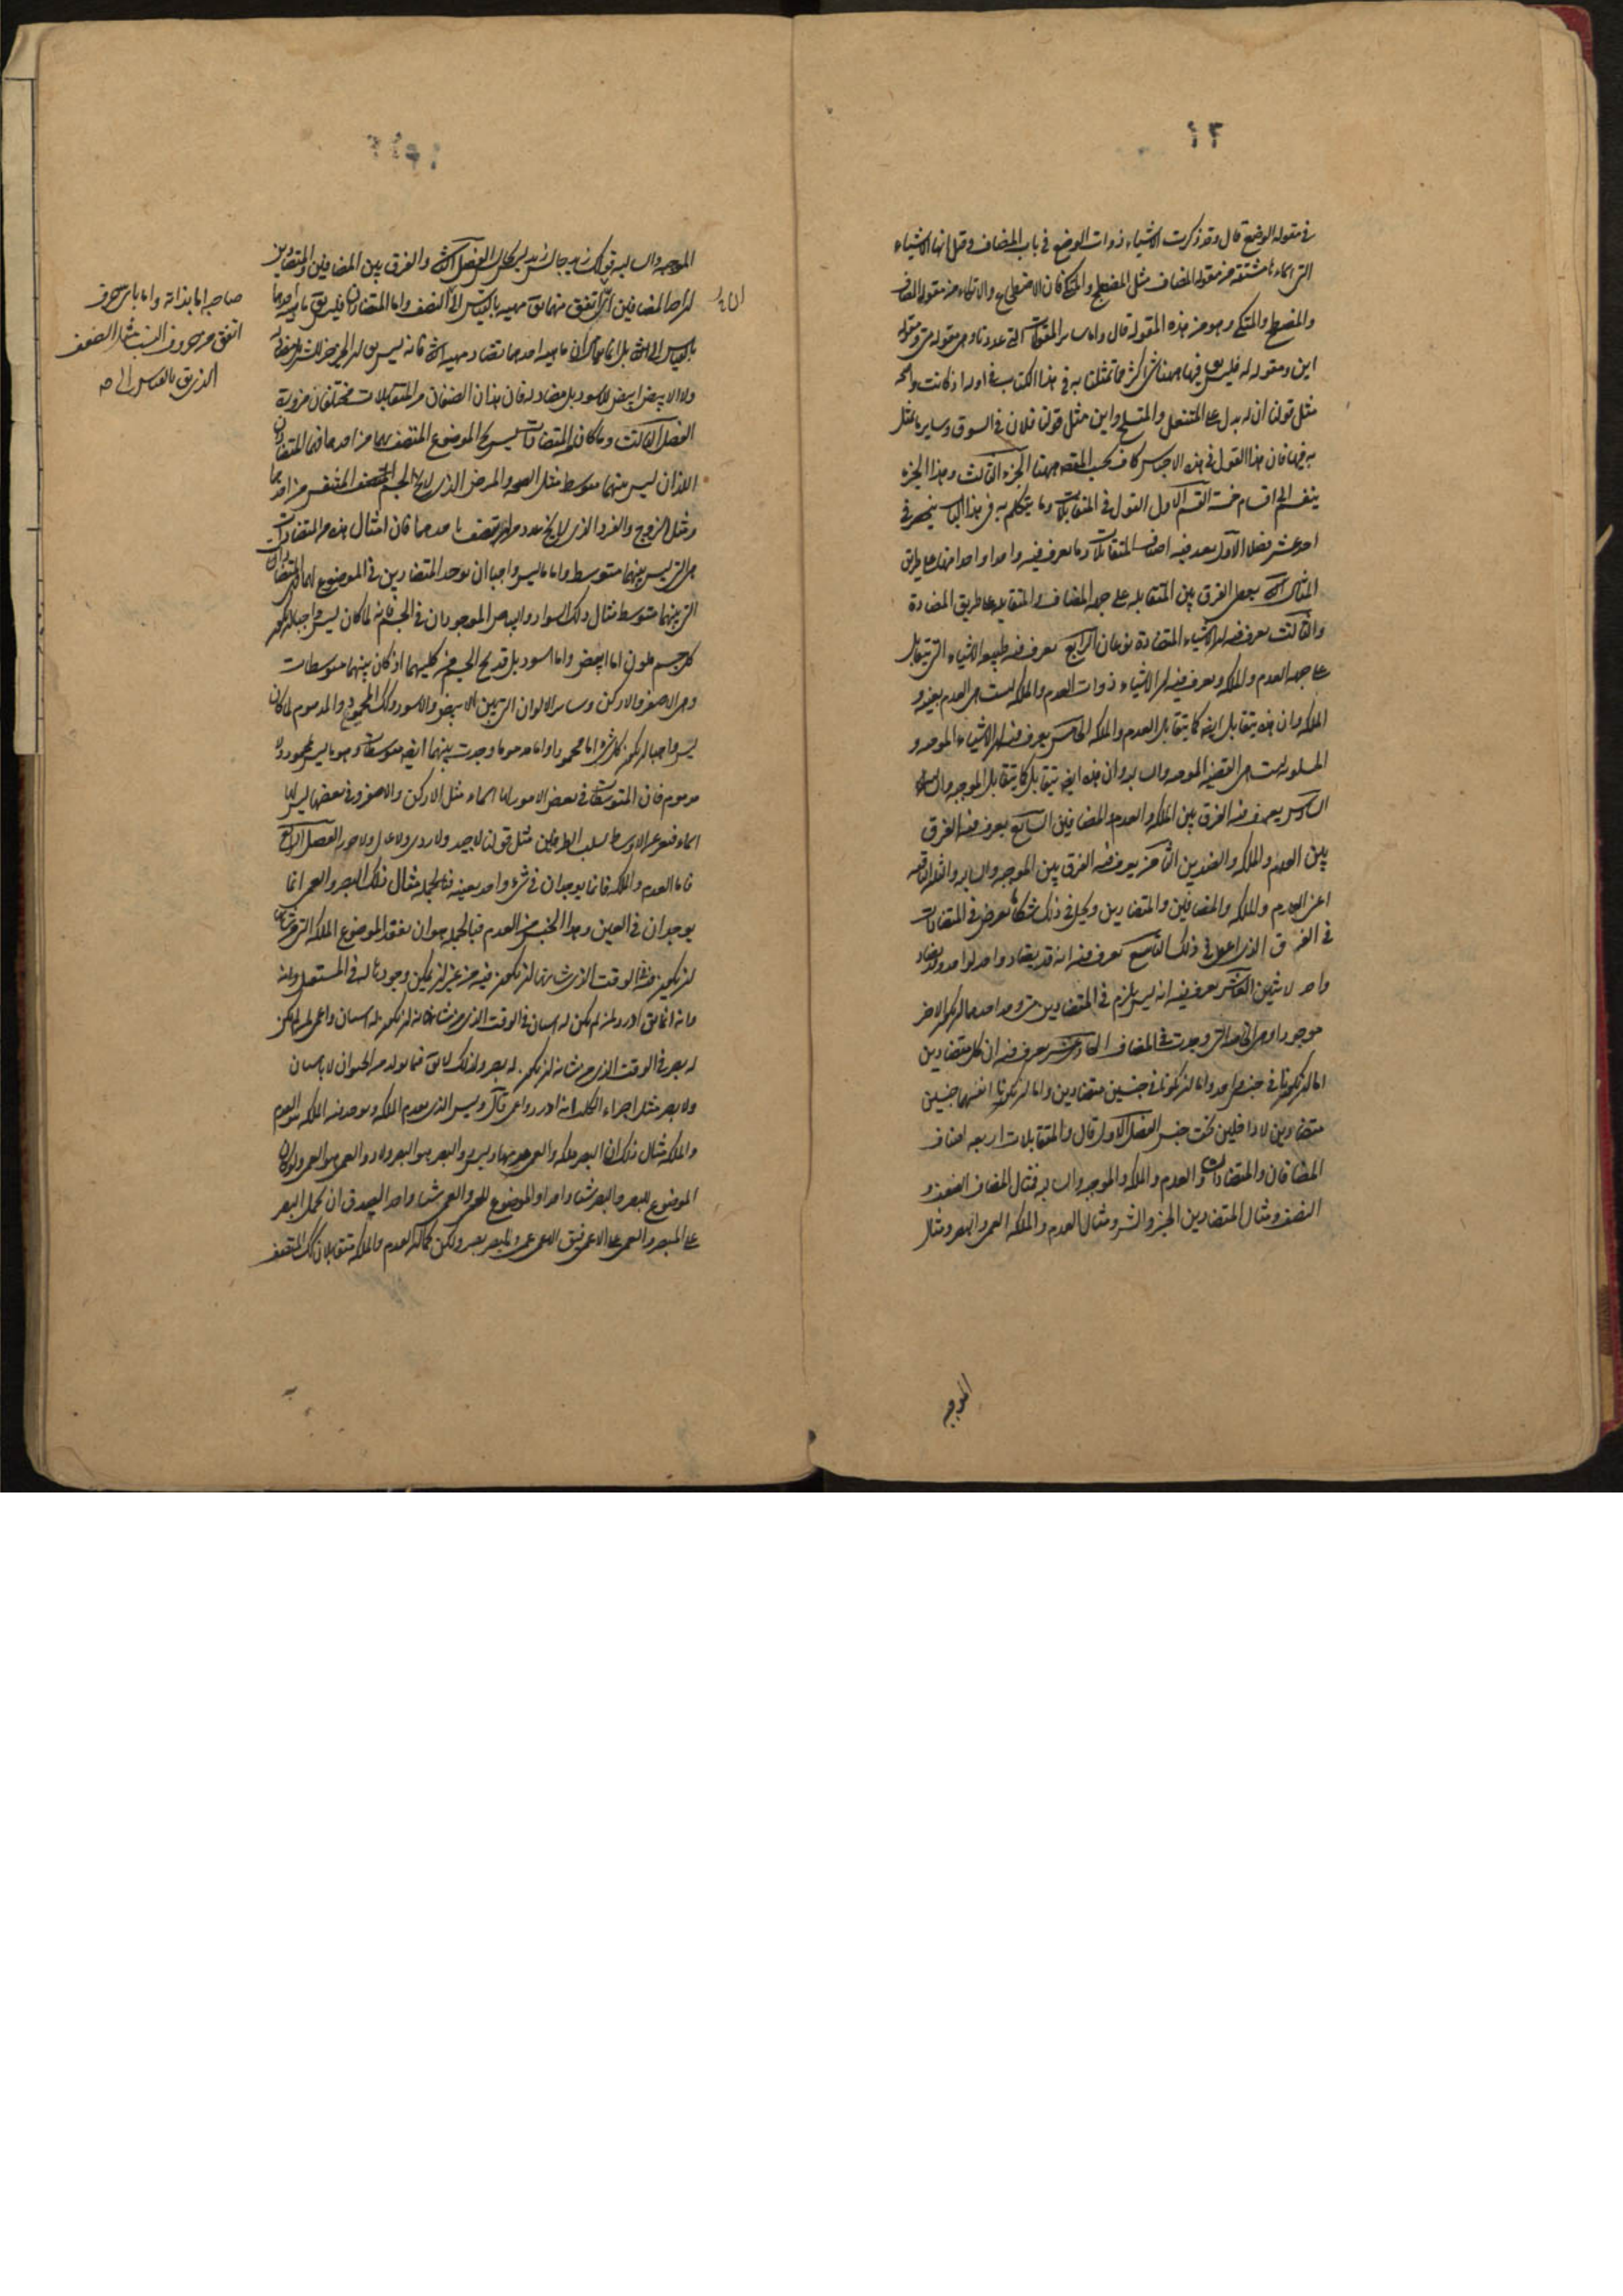 ٤٢
في مقولة الوضع قال وقد ذكرت الاشياء ذوات الوضع في باب المضاف وقيل انها الاشياء
التي اسماؤها مشتقة من مقولة المضاف مثل المضطجع والمتكئ فان الاضطجاع والاتكاء من مقولة المضاف
والمضطجع والمتكئ وهو من هذه المقولة قال واما ساير المقولات التي عددنا وهي مقولة متى ومقولة
اين ومقولة له فليس فيها ههنا شي اكثر مما تمثلنا به في هذا الكتاب في اوله اذ كانت واضحة
مثل قولنا ان له يدل على المتنعل والمتسلح واين مثل قولنا فلان في السوق وساير ما تمثل
به فيها فان هذا القول في هذه الاجناس كاف بحسب المقصد ههنا الجزء الثالث وهذا الجزء
ينقسم الى اقسام خمسة القسم الاول القول في المتقابلات وما يتكلم به في هذا الباب ينحصر في
احد عشر فصلا الاول يعدد فيه اصناف المتقابلات وما يعرف فيه واحدا واحدا منها على طريق
المثال الثاني يجعل الفرق بين المتقابلة على جهة المضاف والمتقابلة على طريق المضادة
والثالث يعرف فيه ان الاشياء المتضادة نوعان الرابع يعرف فيه طبيعة الاشياء التي تتقابل
على جهة العدم والملكة ويعرف فيه ان الاشياء ذوات العدم والملكة ليست هي العدم بعينه و
الملكة وان هذه يتقابل ايضا كما يتقابل العدم والملكة الخامس يعرف فيه ان الاشياء الموجبة و
المسلوبة ليست هي القضية الموجبة والسالبة وان هذه ايضا يتقابل كما يتقابل الموجبة والسالبة
السادس يعرف فيه الفرق بين الملكة والعدم والمضافين السابع يعرف فيه الفرق
بين العدم والملكة والضدين الثامن يعرف فيه الفرق بين الموجبة والسالبة والثلثة الباقية
اعني العدم والملكة والمضافين والمتضادين ويحل في ذلك شكا يعرض في المتضادات
في الفرق الذي اعطى في ذلك التاسع يعرف فيه انه قد يضاد واحد لواحد وقد يضاد
واحد لاثنين العاشر يعرف فيه انه ليس يلزم في المتضادين متى وجد احدهما ان يكون الاخر
موجودا وهي الخاصة التي وجدت في المضاف الحادي عشر يعرف فيه ان كل متضادين
اما ان يكونا في جنس واحد واما ان يكونا في جنسين متضادين واما ان يكونا انفسهما جنسين
متضادين لا داخلين تحت جنس الفصل الاول قال والمتقابلات اربعة اصناف
المضافان والمتضادان والعدم والملكة والموجبة والسالبة فمثال المضاف الضعف و
النصف ومثال المتضادين الخير والشر ومثال العدم والملكة العمى والبصر ومثال
الموجبة
الموجبة والسالبة قولك زيد جالس زيد ليس بجالس الفصل الثاني والفرق بين المضافين والمتضادين
ان احد المضافين اي اتفق منهما تق مهيته بالقياس الى النصف واما المتضادان فليس تق ماهية احدهما
بالقياس الى الثاني بل انما يقال ان ماهية احدهما تضاد مهية الثاني فانه ليس يق ان الخير خير للشر بل مضاد له
ولا الابيض ابيض للاسود بل مضاد له فان هذان الصنفان من المتقابلات مختلفان ضرورة
الفصل الثالث وما كان من المتضادات ليس يخلو الموضوع المتصف بهما من احدهما فهما المتضادان
اللذان ليس بينهما متوسط مثل الصحة والمرض الذي لا يخلو الجسم المتنفس من احدهما
ومثل الزوج والفرد الذي لا يخلو عدد من ان يتصف باحدهما فان امثال هذه من المتضادات
هي التي ليس بينهما متوسط واما ما ليس واجبا ان يوجد احد المتضادين في الموضوع لهما فهي المتضادان
التي بينهما متوسط مثال ذلك السواد والبياض الموجودان في الجسم فانه لما كان ليس واجبا ان يكون
كل جسم ملون اما ابيض واما اسود بل قد يخلو الجسم من كليهما اذ كان بينهما متوسطات
وهي الاصفر والادكن وساير الالوان التي بين الابيض والاسود وكذلك المحمود والمذموم لما كان
ليس واجبا ان يكون كل شيء اما محمودا واما مذموما وجدت بينهما ايضا متوسطات وهو ما ليس بمحمود ولا
مذموم فان المتوسطات في بعض الامور لها اسماء مثل الادكن والاصفر وفي بعضها ليس لها
اسماء فنعبر عن الاوسط بسلب الطرفين مثل قولنا لا جيد ولا ردي ولا عدل ولا جور الفصل الرابع
فاما العدم والملكة فانما يوجدان في شيء واحد بعينه فبالجملة مثال ذلك البصر والعمى انما
يوجدان في العين وهذا الجنس من العدم فبالجملة هو ان يفقد الموضوع الملكة التي من شانها
ان يكون فيه في الوقت الذي شانها ان يكون فيه من غير ان يمكن وجودها له في المستقبل
فانه انما يق ادرد لمن لم يكن له اسنان في الوقت الذي من شانه ان يكون له اسنان واعمى لمن لم يكن
له بصر في الوقت الذي من شانه ان يكون له بصر ولذلك لا يق فيما يولد من الحيوان لا باسنان
ولا بصر مثل اجراء الكلب انه ادرد واعمى قال وليس الذي يعدم الملكة ويوجد فيه الملكة هو العدم
والملكة مثال ذلك ان البصر ملكة والعمى عدمها وليس ذو البصر هو البصر ولا ذو العمى هو العمى ولو كان
الموضوع للبصر والبصر شيا واحدا والموضوع للعمى والعمى شيا واحدا لصدق ان يحمل البصر
على المبصر والعمى على الاعمى فيق الاعمى عمى والمبصر بصر ولكن كما ان العدم والملكة متقابلان كذلك المتصف
صاحبه اما بذاته واما باي حرف
اتفق من حروف النسب مثل الضعف
الذي يق بالقياس الى صح